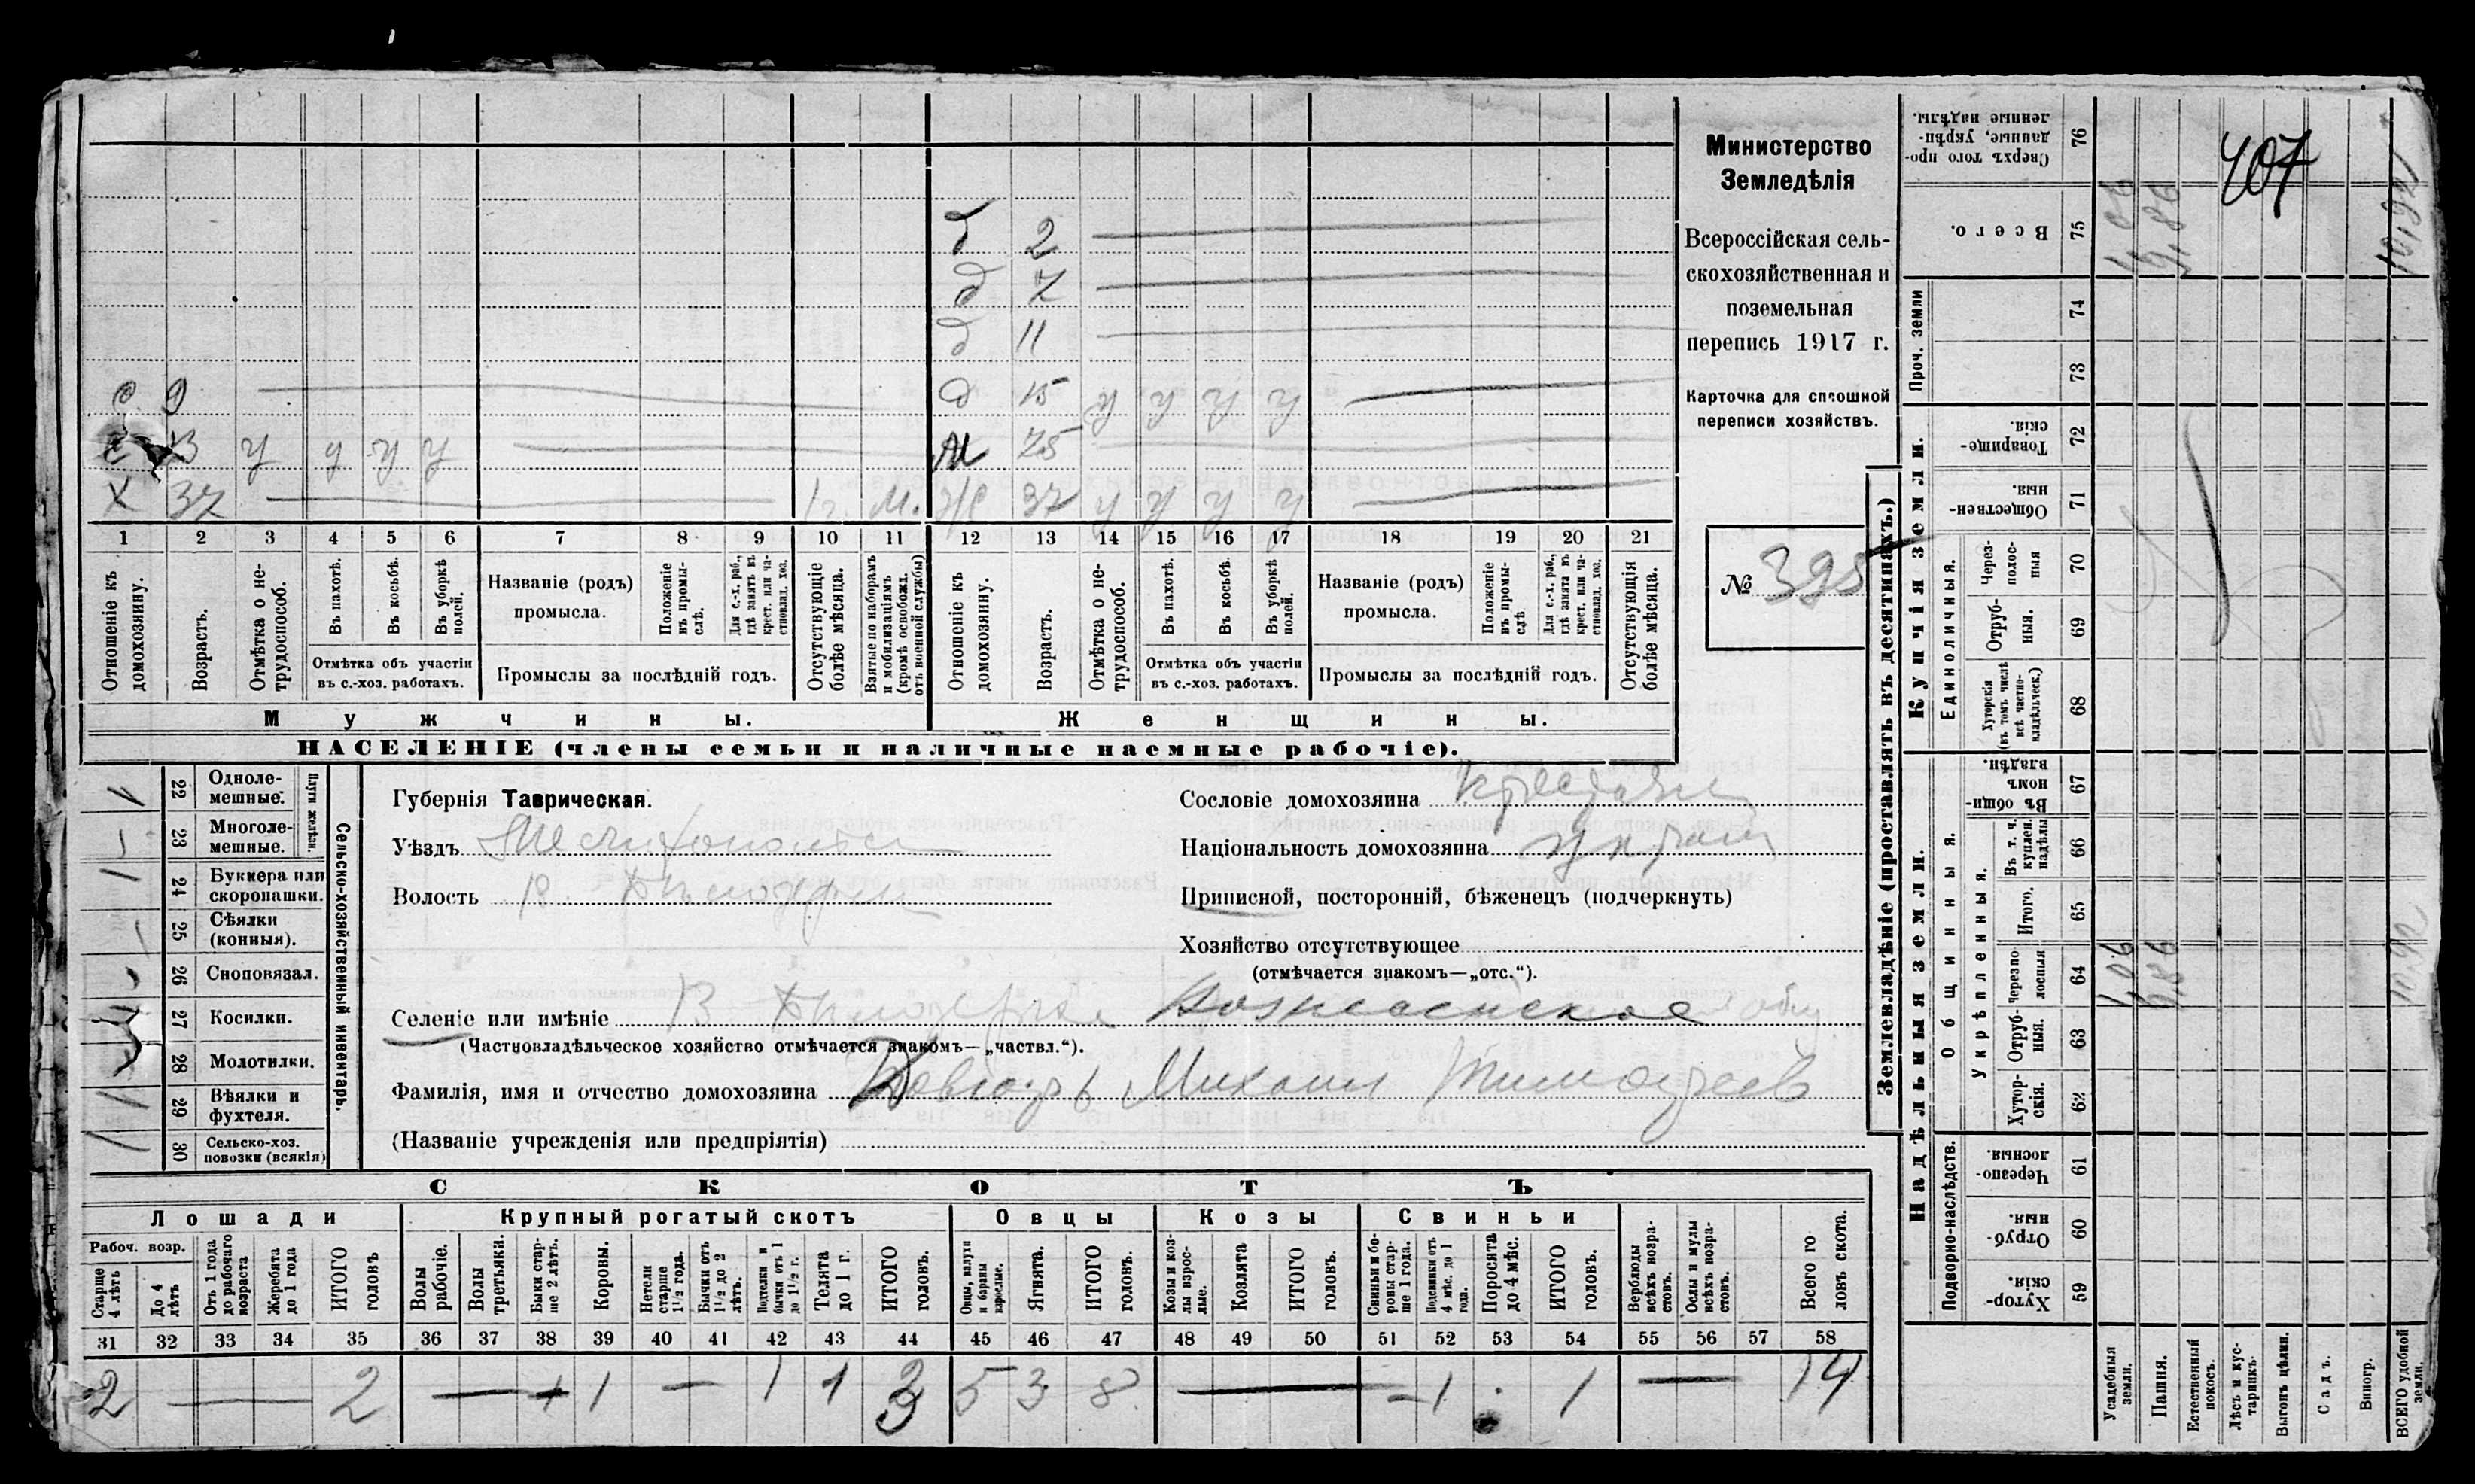 407
Министерство
Земледѣлія
Всероссійская сель-
скохозяйственная и
поземельная
перепись 1917 г.
Карточка для сплошной
переписи хозяйствъ.
№ 395
д 2
д 7
д 11
с 9 д 15 у у у у
у у у у м 75
х 37 1 г. м. ж 37 у у у у
1 2 3 4 5 6 7 8 9 10 11 12 13 14 15 16 17 18 19 20 21
Отношеніе къ домохозяину.
Возрастъ.
Отмѣтка о не-трудоспособ.
Въ пахотѣ.
Въ косьбѣ.
Въ уборкѣ полей.
Отмѣтка объ участіи
въ с.-хоз. работахъ.
Названіе (родъ)
промысла.
Положеніе въ промы-слѣ.
Для с.-х. раб., гдѣ занятъ въ крест. или ча-стновлад. хоз.
Промыслы за послѣдній годъ.
Отсутствующіе болѣе мѣсяца.
Взятые по наборамъ и мобилизаціямъ (кромѣ освобожд. отъ военной службы)
Отношеніе къ домохозяину.
Возрастъ.
Отмѣтка о не-трудоспособ.
Въ пахотѣ.
Въ косьбѣ.
Въ уборкѣ полей.
Отмѣтка объ участіи
въ с.-хоз. работахъ.
Названіе (родъ)
промысла.
Положеніе въ промы-слѣ.
Для с.-х. раб., гдѣ занятъ въ крест. или ча-стновлад. хоз.
Промыслы за послѣдній годъ.
Отсутствующія болѣе мѣсяца.
Мужчины. Женщины.
НАСЕЛЕНІЕ (члены семьи и наличные наемные рабочіе).
22 Одноле-мешные.
23 Многоле-мешные.
Плуги желѣзн.
24 Буккера или скоропашки.
25 Сѣялки (конныя).
26 Сноповязал.
27 Косилки.
28 Молотилки.
29 Вѣялки и фухтеля.
30 Сельско-хоз. повозки (всякія)
Сельско-хозяйственный инвентарь.
Губернія Таврическая.
Уѣздъ Мелитопольск
Волость В. Бѣлозерск
Сословіе домохозяина крестьян
Національность домохозяина украин
Приписной, посторонній, бѣженецъ (подчеркнуть)
Хозяйство отсутствующее
(отмѣчается знакомъ—„отс.“).
Селеніе или имѣніе В Бѣлозерка Вознесенское общ
(Частновладѣльческое хозяйство отмѣчается знакомъ—„частвл.“).
Фамилія, имя и отчество домохозяина Михаил Тимофеев
(Названіе учрежденія или предпріятія)
СКОТЪ
Лошади Крупный рогатый скотъ Овцы Козы Свиньи
Рабоч. возр.
Старше 4 лѣтъ
До 4 лѣтъ
Отъ 1 года до рабочаго возраста
Жеребята до 1 года
ИТОГО головъ
Волы рабочіе.
Волы третьяки.
Быки стар-ше 2 лѣтъ.
Коровы.
Нетели старше 1½ года.
Бычки отъ 1½ до 2 лѣтъ.
Подтелки и бычки отъ 1 до 1½ г.
Телята до 1 г.
ИТОГО головъ.
Овцы, валухи и бараны взрослые.
Ягнята.
ИТОГО головъ.
Козы и коз-лы взрос-лые.
Козлята
ИТОГО головъ.
Свиньи и бо-ровы стар-ше 1 года.
Подсвинки отъ 4 мѣс. до 1 года.
Поросята до 4 мѣс.
ИТОГО головъ.
Верблюды всѣхъ возра-стовъ.
Ослы и мулы всѣхъ возра-стовъ.
Всего го-ловъ скота.
31 32 33 34 35 36 37 38 39 40 41 42 43 44 45 46 47 48 49 50 51 52 53 54 55 56 57 58
2 — 2 — 1 — 1 1 3 5 3 8 — 1 1 — 14
Землевладѣніе (проставлять въ десятинахъ.)
Надѣльныя земли.
Купчія земли.
Проч. земли
Подворно-наслѣдств.
Общинныя.
Укрѣпленныя.
Единоличныя.
59 Хутор-скія.
60 Отруб-ныя.
61 Черезпо-лосныя.
62 Хутор-скія.
63 Отруб-ныя.
64 Черезпо-лосныя
65 Итого.
66 Въ т. ч. куплен. надѣлы
67 Въ общи-номъ владѣн.
68 Хуторскія (въ томъ числѣ всѣ частно-владѣльческ.)
69 Отруб-ныя.
70 Через-полос-ныя
71 Обществен-ныя.
72 Товарище-скія.
73
74
75 Всего.
76 Сверхъ того про-данные, укрѣп-ленные надѣлы.
Усадебныя земли. 1,06 1,06
Пашня. 9,86 9,86
Естественный покосъ.
Лѣсъ и кус-тарникъ
Выгонъ цѣлин.
Садъ.
Виногр.
ВСЕГО удобной земли. 10,92 10,92